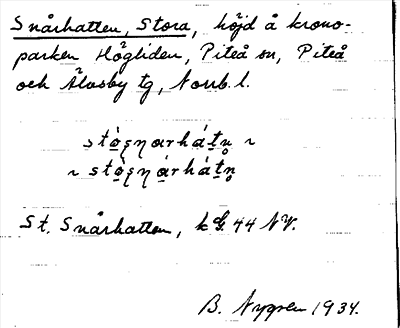 Snårhatten, Stora, höjd å krono-
parken Högliden, Piteå sn, Piteå
och Älvsby tg, Norrb. l.
St. Snårhatten, k G. 44 NV.
B. Nygren 1934.